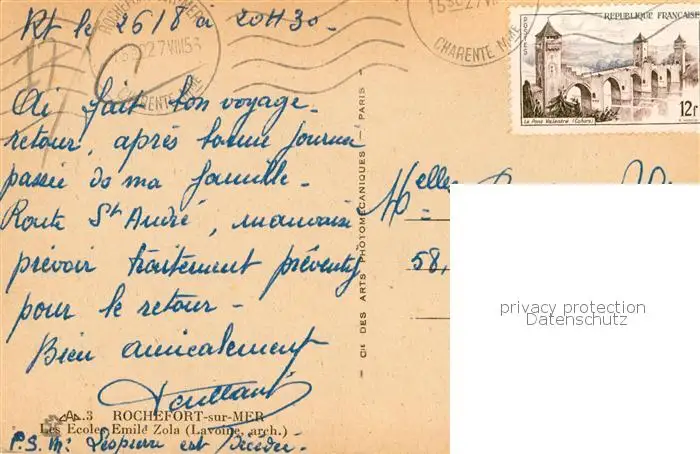 Rt le 26/8 à 20H30.
ROCHEFORT-SUR-MER
15H30 27 VIII 58
CHARENTE MME
RÉPUBLIQUE FRANÇAISE
POSTES
Le Pont Valentré (Cahors)
12F
Ai fait bon voyage.
retour, après bonne journée
passée ds ma famille.
Route St André, mauvaise
prévoir traitement préventif
pour le retour -
Bien amicalement
Melles
58,
Cie DES ARTS PHOTOMECANIQUES - PARIS
A. 3 ROCHEFORT-sur-MER
Les Ecoles Emile Zola (Lavoine, arch.)
P.S. Mr Lespierre est Décédé.
privacy protection
Datenschutz